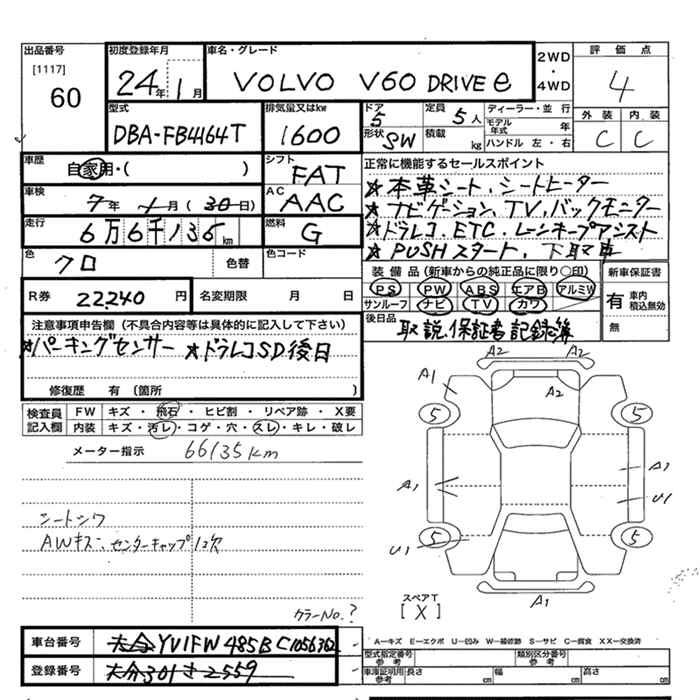 出品番号 初度登録年月 車名・グレード 2WD ・ 4WD 評価点
[1117]
60 24年1月 VOLVO V60 DRIVEe 4
型式 排気量又はkw ドア 5 定員 5人 ディーラー・並行 外装 内装
DBA-FB4164T 1600 形状 SW 積載 kg モデル年式 年 ハンドル 左・右 C C
車歴 自家用・( ) シフト FAT 正常に機能するセールスポイント
車検 7年1月(30日) AC AAC ★本革シート、シートヒーター
★ナビゲーション、TV、バックモニター
走行 6万6千135km 燃料 G ★ドラレコ、ETC、レーンキープアシスト
色 クロ 色替 色コード ★PUSHスタート、下取車
R券 22,240円 名変期限 月 日 装備品(新車からの純正品に限り○印) 新車保証書
PS PW ABS エアB アルミW 有 車内 積込無効
サンルーフ ナビ TV カワ 無
注意事項申告欄(不具合内容等は具体的に記入して下さい) 後日品 取説.保証書 記録簿
★パーキングセンサー ★ドラレコSD後日
修復歴 有(箇所 )
検査員記入欄 FW キズ・飛石・ヒビ割・リペア跡・X要
内装 キズ・汚レ・コゲ・穴・スレ・キレ・破レ
メーター指示 66135km
A2 A2
A1 A2
5 5
A1 A1
U1
U1
5 5
A1
シートシワ
AWキズ、センターキャップ1コ欠
スペアT
[X]
カラーNo.?
車台番号 YV1FW485BC1056362 A－キズ E－エクボ U－凹み W－補修跡 S－サビ C－腐食 XX－交換済
型式指定番号 参考 類別区分番号 参考
登録番号 車庫証明用 参考 長さ cm 幅 cm 高さ cm